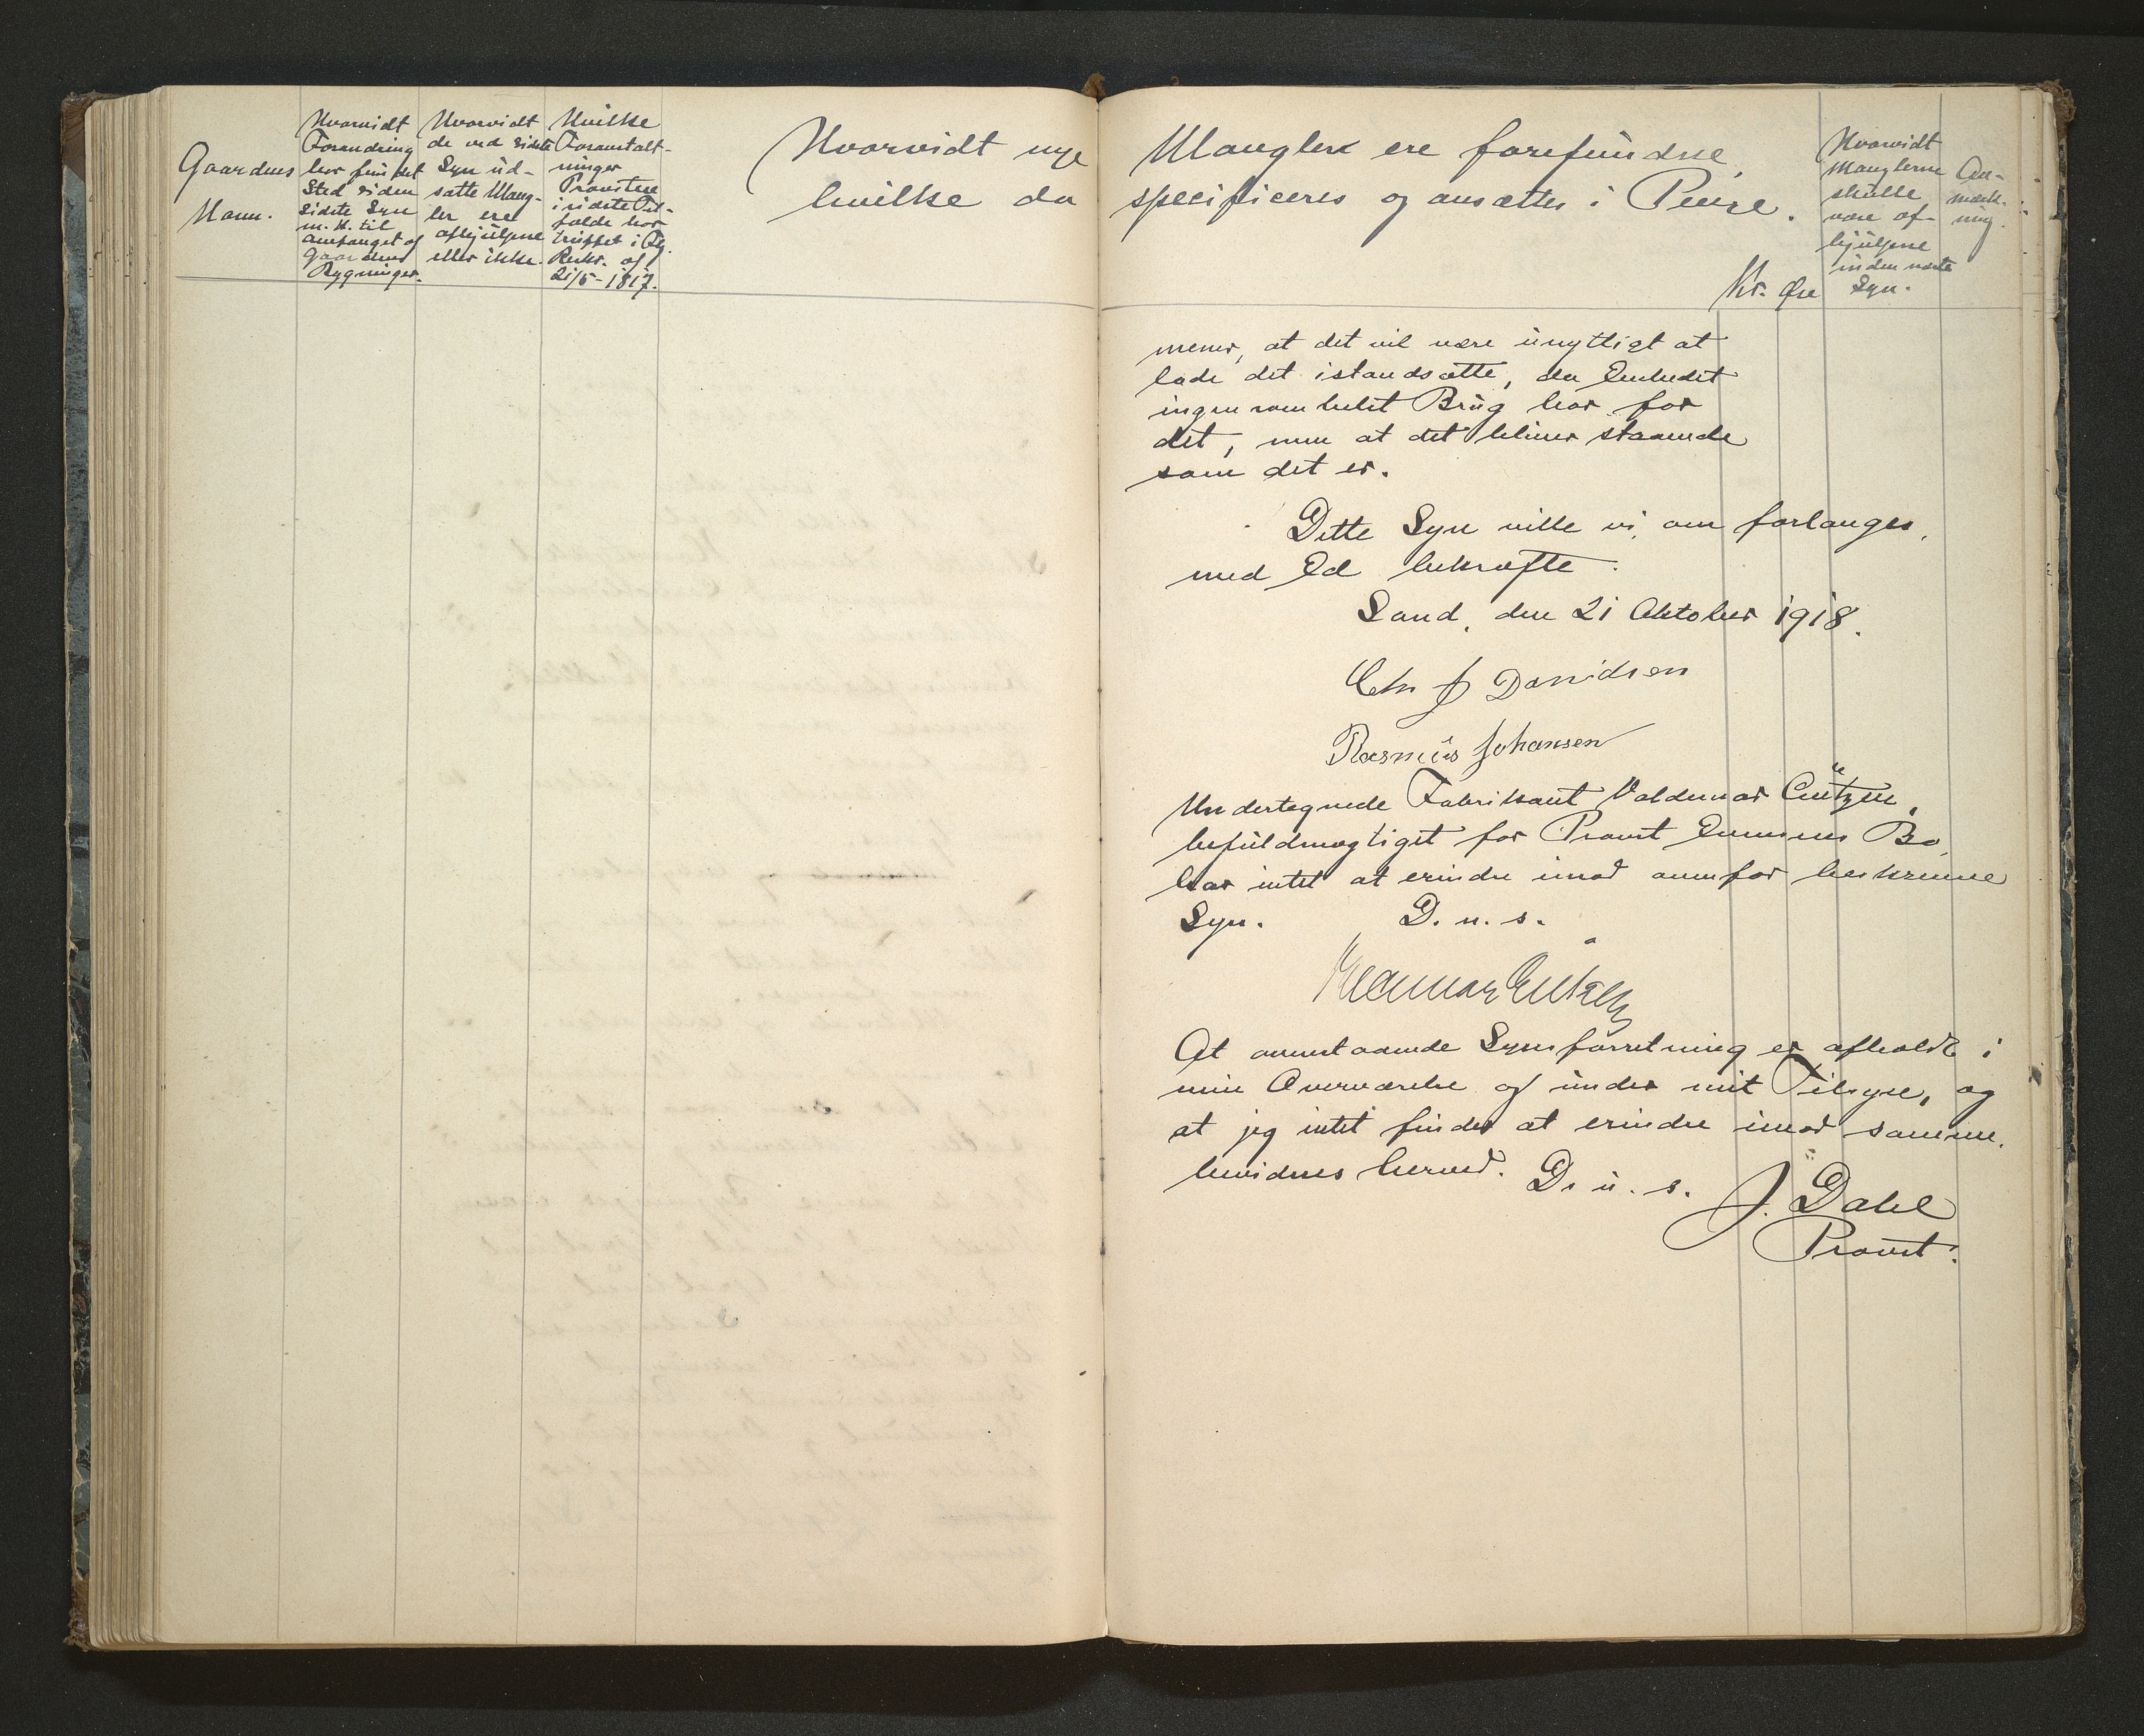 Gaardens
Navn.
Hvorvidt
Forandring
har fundet
Sted siden
sidste Syn
m. H. til
Antallet af
Gaardens
Bygninger.
Hvorvidt
de ved sidste
Syn ud-
satte Mang-
ler ere
afhjulpne
eller ikke.
Hvilke
Foranstalt-
ninger
Provsten
i sidste Til-
fælde har
truffet i Flg.
Reskr. af
21/5-1817.
Hvorvidt nye Mangler ere forefundne,
hvilke da specificeres og ansættes i Penge.
Kr. Øre
Hvorvidt
Manglerne
skulle
være af-
hjulpne
inden næste
Syn.
An-
mærk-
ning.
mener, at det vil være unyttigt at
lade det istandsætte, da Embedet
ingensomhelst Brug har for
det, men at det bliver staaende
som det er.
Dette Syn ville vi, om forlanges,
med Ed bekræfte.
Sand, den 21 Oktober 1918.
Chr J Davidsen
Rasmus Johansen
Undertegnede Fabrikant Valdemar
befuldmægtiget for Provst Bo,
har intet at erindre imod ovenfor beskrevne
Syn. D. u. s.
At ovenstaaende Synsforretning er afholdt i
min Overværelse og under mit Tilsyn, og
at jeg intet finder at erindre imod samme,
bevidnes herved. D. u. s.
J. Dahl
Provst.